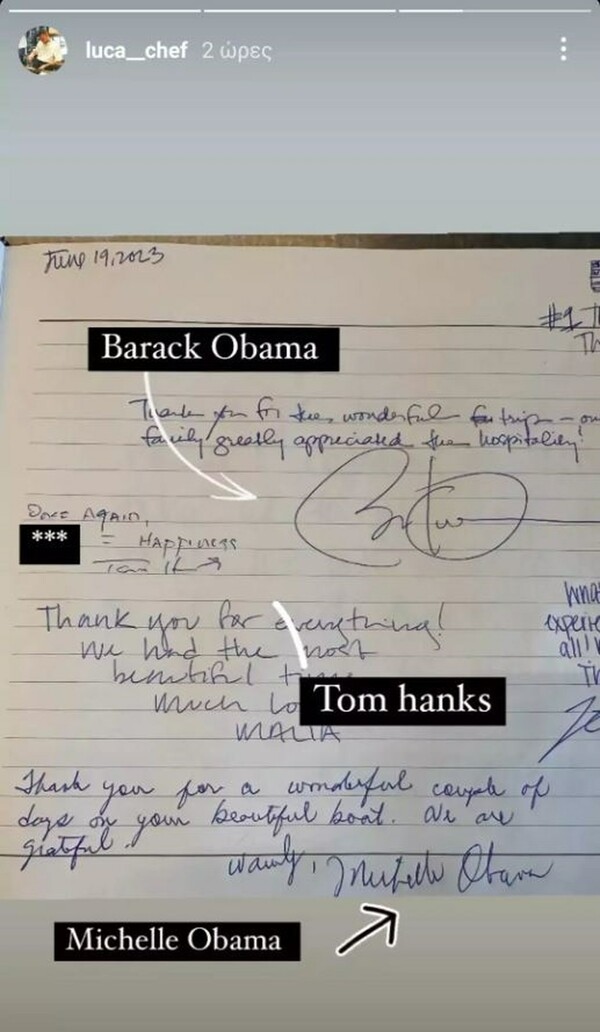 luca__chef 2 ώρες
June 19, 2023
#1 T
Th
Barack Obama
Thank you for the wonderful trip – ou
family greatly appreciated the hospitality!
Once Again,
*** = Happiness
Tom H
Thank you for everything!
We had the most
beautiful tim
Much lo
MALIA
What
experie
all!
Th
Tom hanks
Thank you for a wonderful couple of
days on your beautiful boat. We are
grateful.
Warmly, Michelle Obama
Michelle Obama